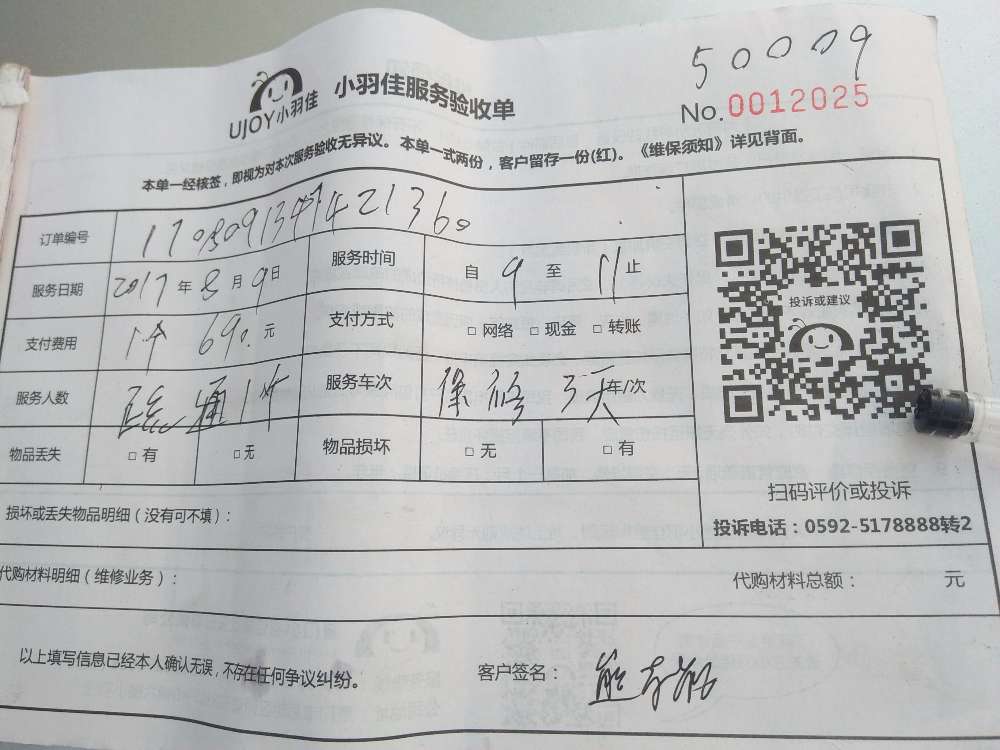 50009
UJOY小羽佳 小羽佳服务验收单
No.0012025
本单一经核签，即视为对本次服务验收无异议。本单一式两份，客户留存一份(红)。《维保须知》详见背面。
订单编号
服务日期 2017年8月9日 服务时间 自9至11止
支付费用 69 元 支付方式 □网络 □现金 □转账
服务人数 疏通1 服务车次 保修3天 车/次
物品丢失 □有 □无 物品损坏 □无 □有
投诉或建议
扫码评价或投诉
投诉电话：0592-5178888转2
损坏或丢失物品明细（没有可不填）：
代购材料明细（维修业务）： 代购材料总额： 元
以上填写信息已经本人确认无误，不存在任何争议纠纷。 客户签名：